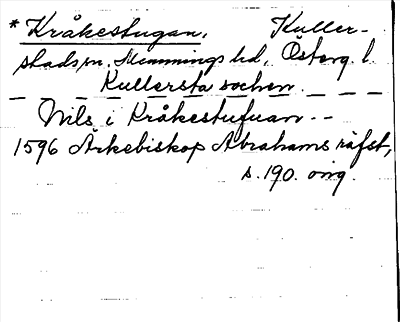 * Kråkestugan, Kuller-
stads sn. Memmings hd, Österg. l.
Kullersta sochen.
Nils i Kråkestufuan --
1596 Ärkebiskop Abrahams räfst,
s. 190. orig.